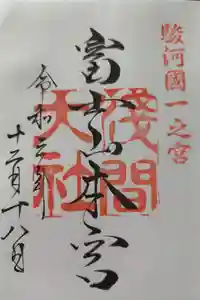 駿河國一之宮
富士山本宮
淺間大社
令和三年
十二月十八日